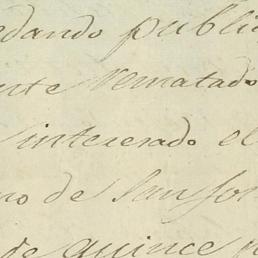 edando public
nte rematado
interesado el
no de
de quince p